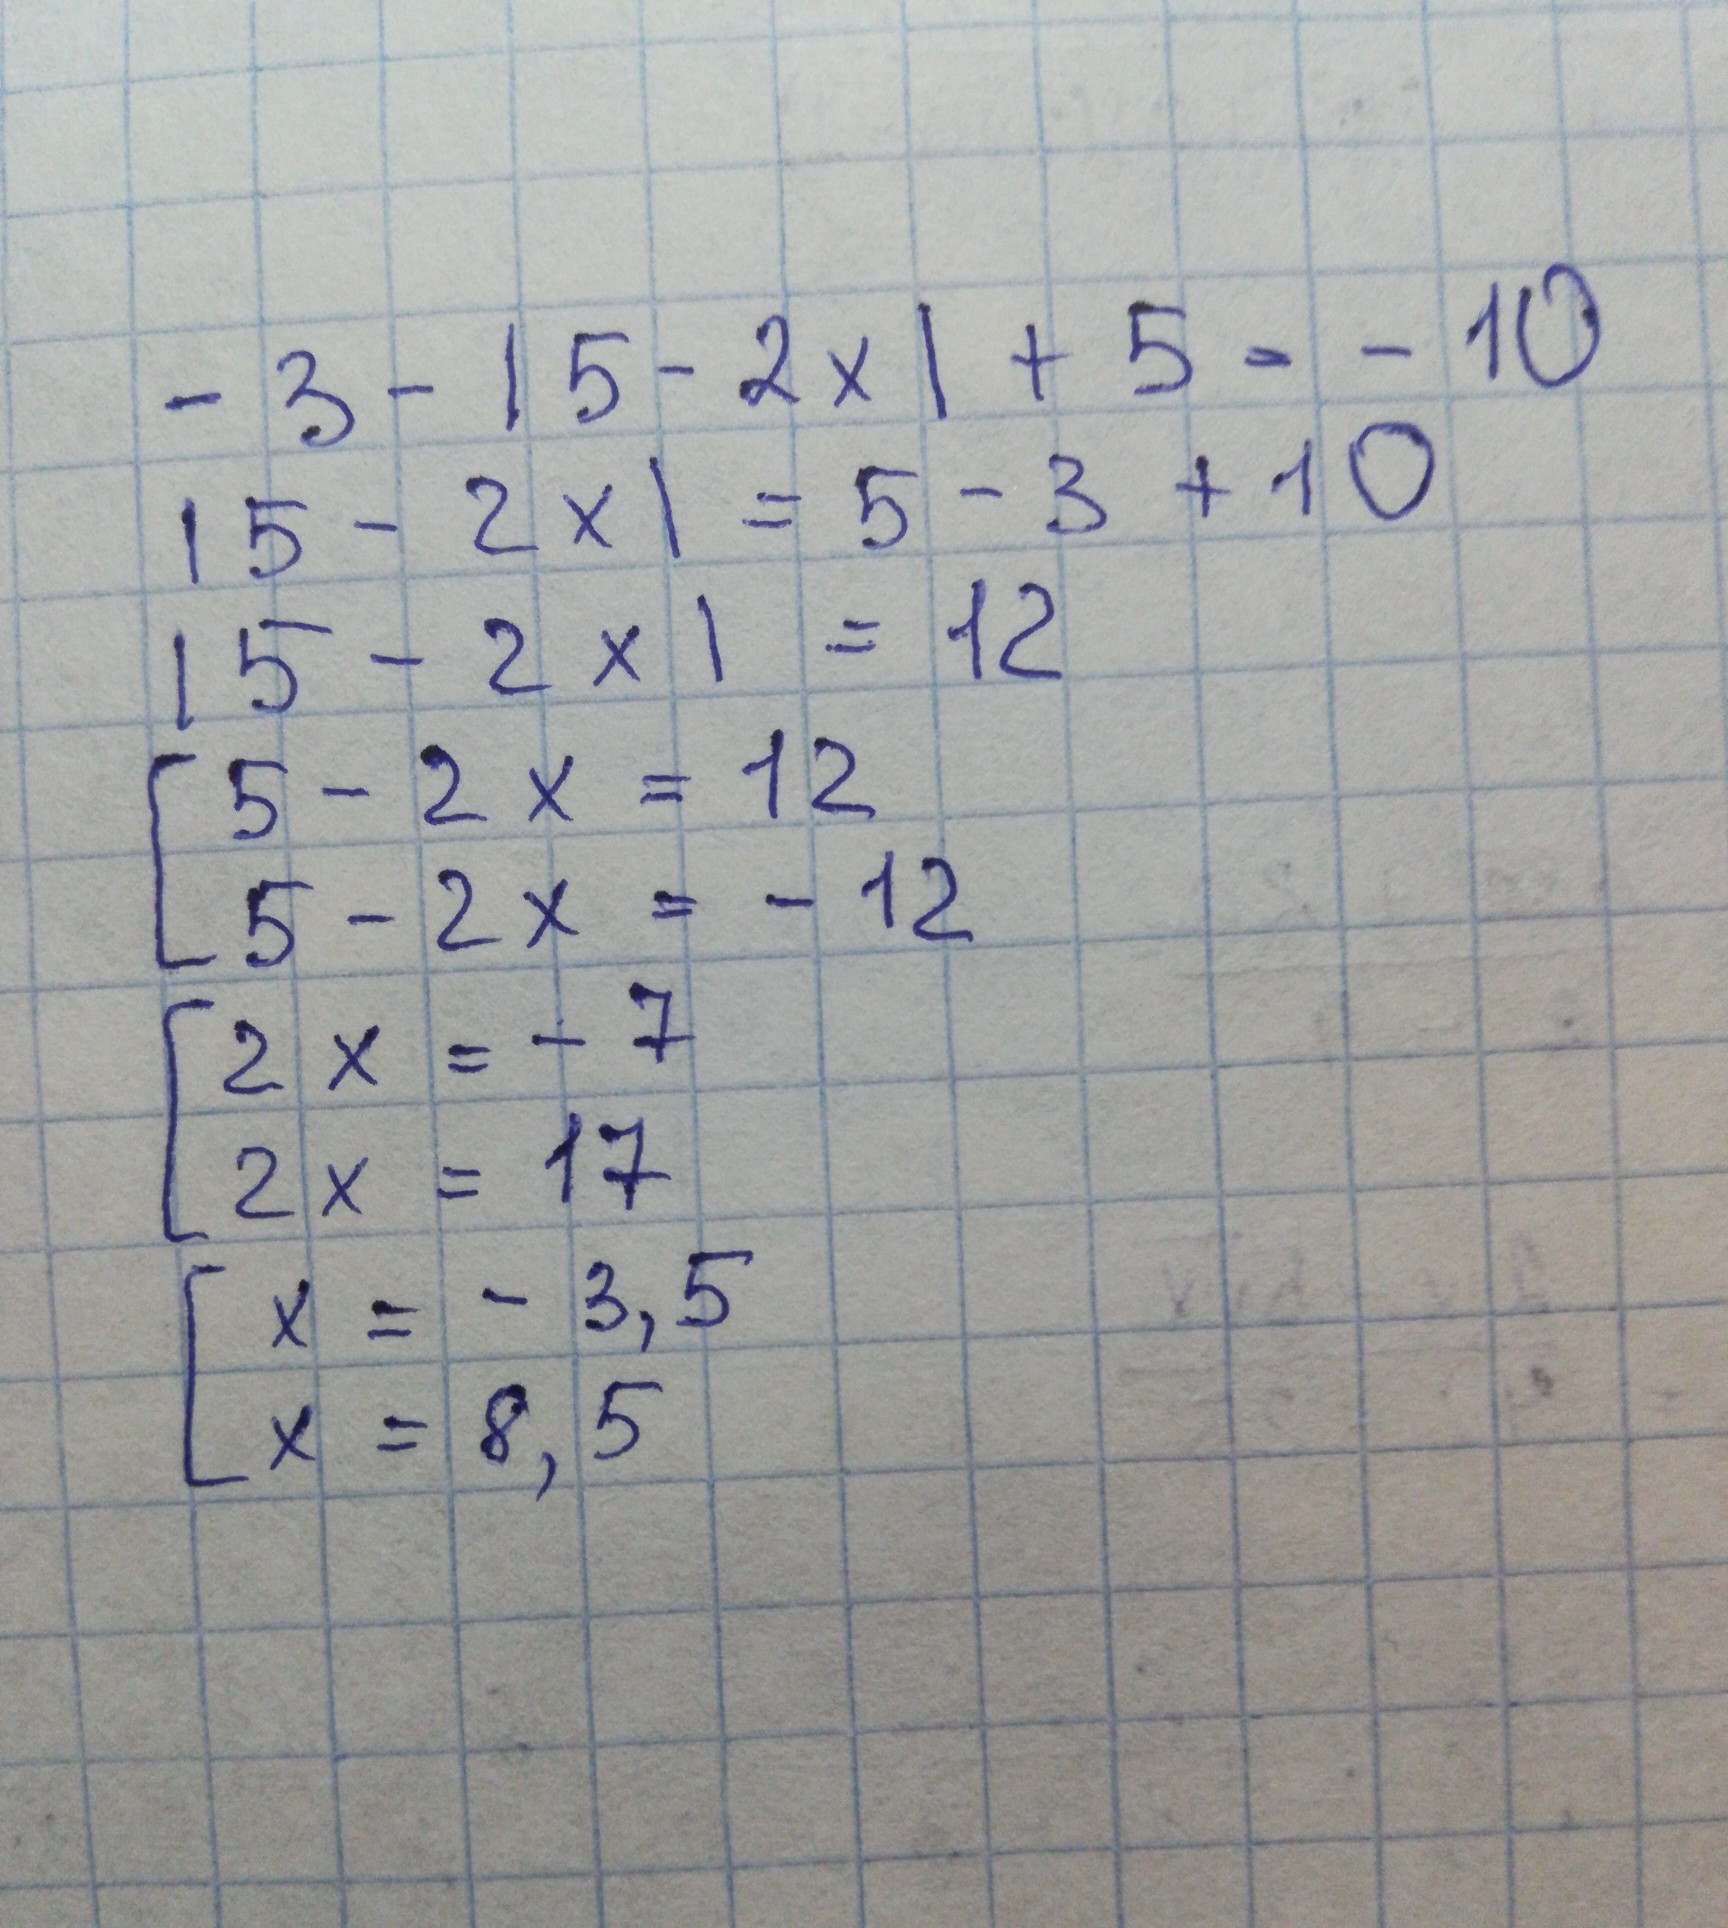 - 3 - |5 - 2x| + 5 = - 10
|5 - 2x| = 5 - 3 + 10
|5 - 2x| = 12
[5 - 2x = 12
5 - 2x = - 12
[2x = - 7
2x = 17
[x = - 3,5
x = 8,5